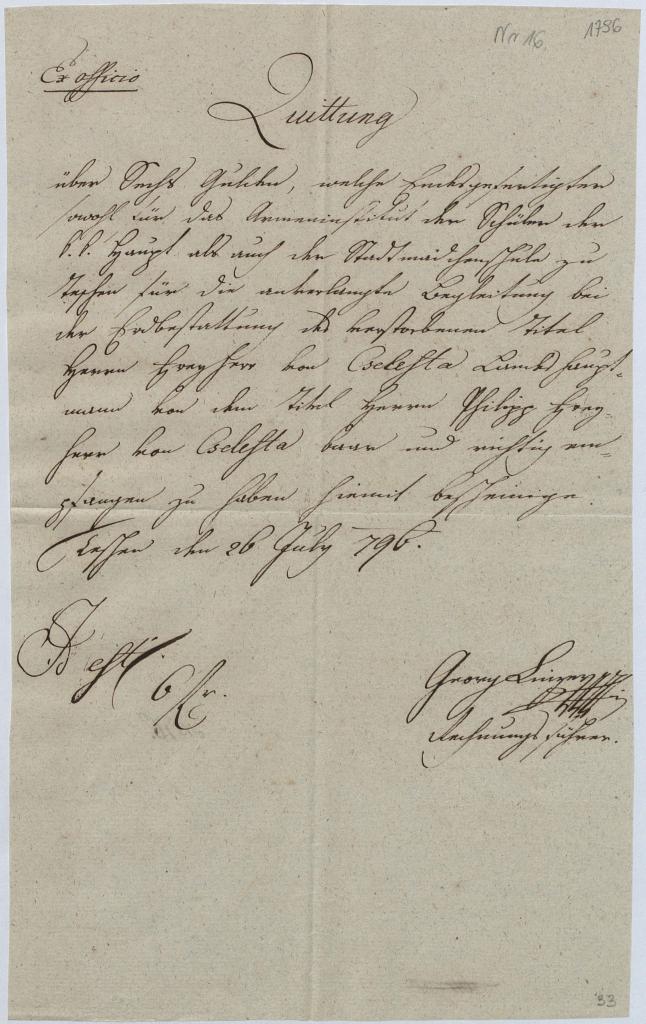 Nr 16. 1796
Ex officio
Quittung
über Sechs Gulden, welche Endesgefertigter
sowohl für das Armeninstitut der Schüler der
k. k. Haupt als auch der Stadtmädchenschule zu
Teschen für die anverlangte Begleitung bei
der Erdbestattung des verstorbenen Titel
Herrn Freyherr von Cselesta Landeshaupt-
mann von dem Titel Herrn Philipp Frey-
herr von Cselesta baar und richtig em-
pfangen zu haben hiemit bescheinige.
Teschen den 26 July 796.
Id est
6 fr.
Georg
Rechnungsführer.
33